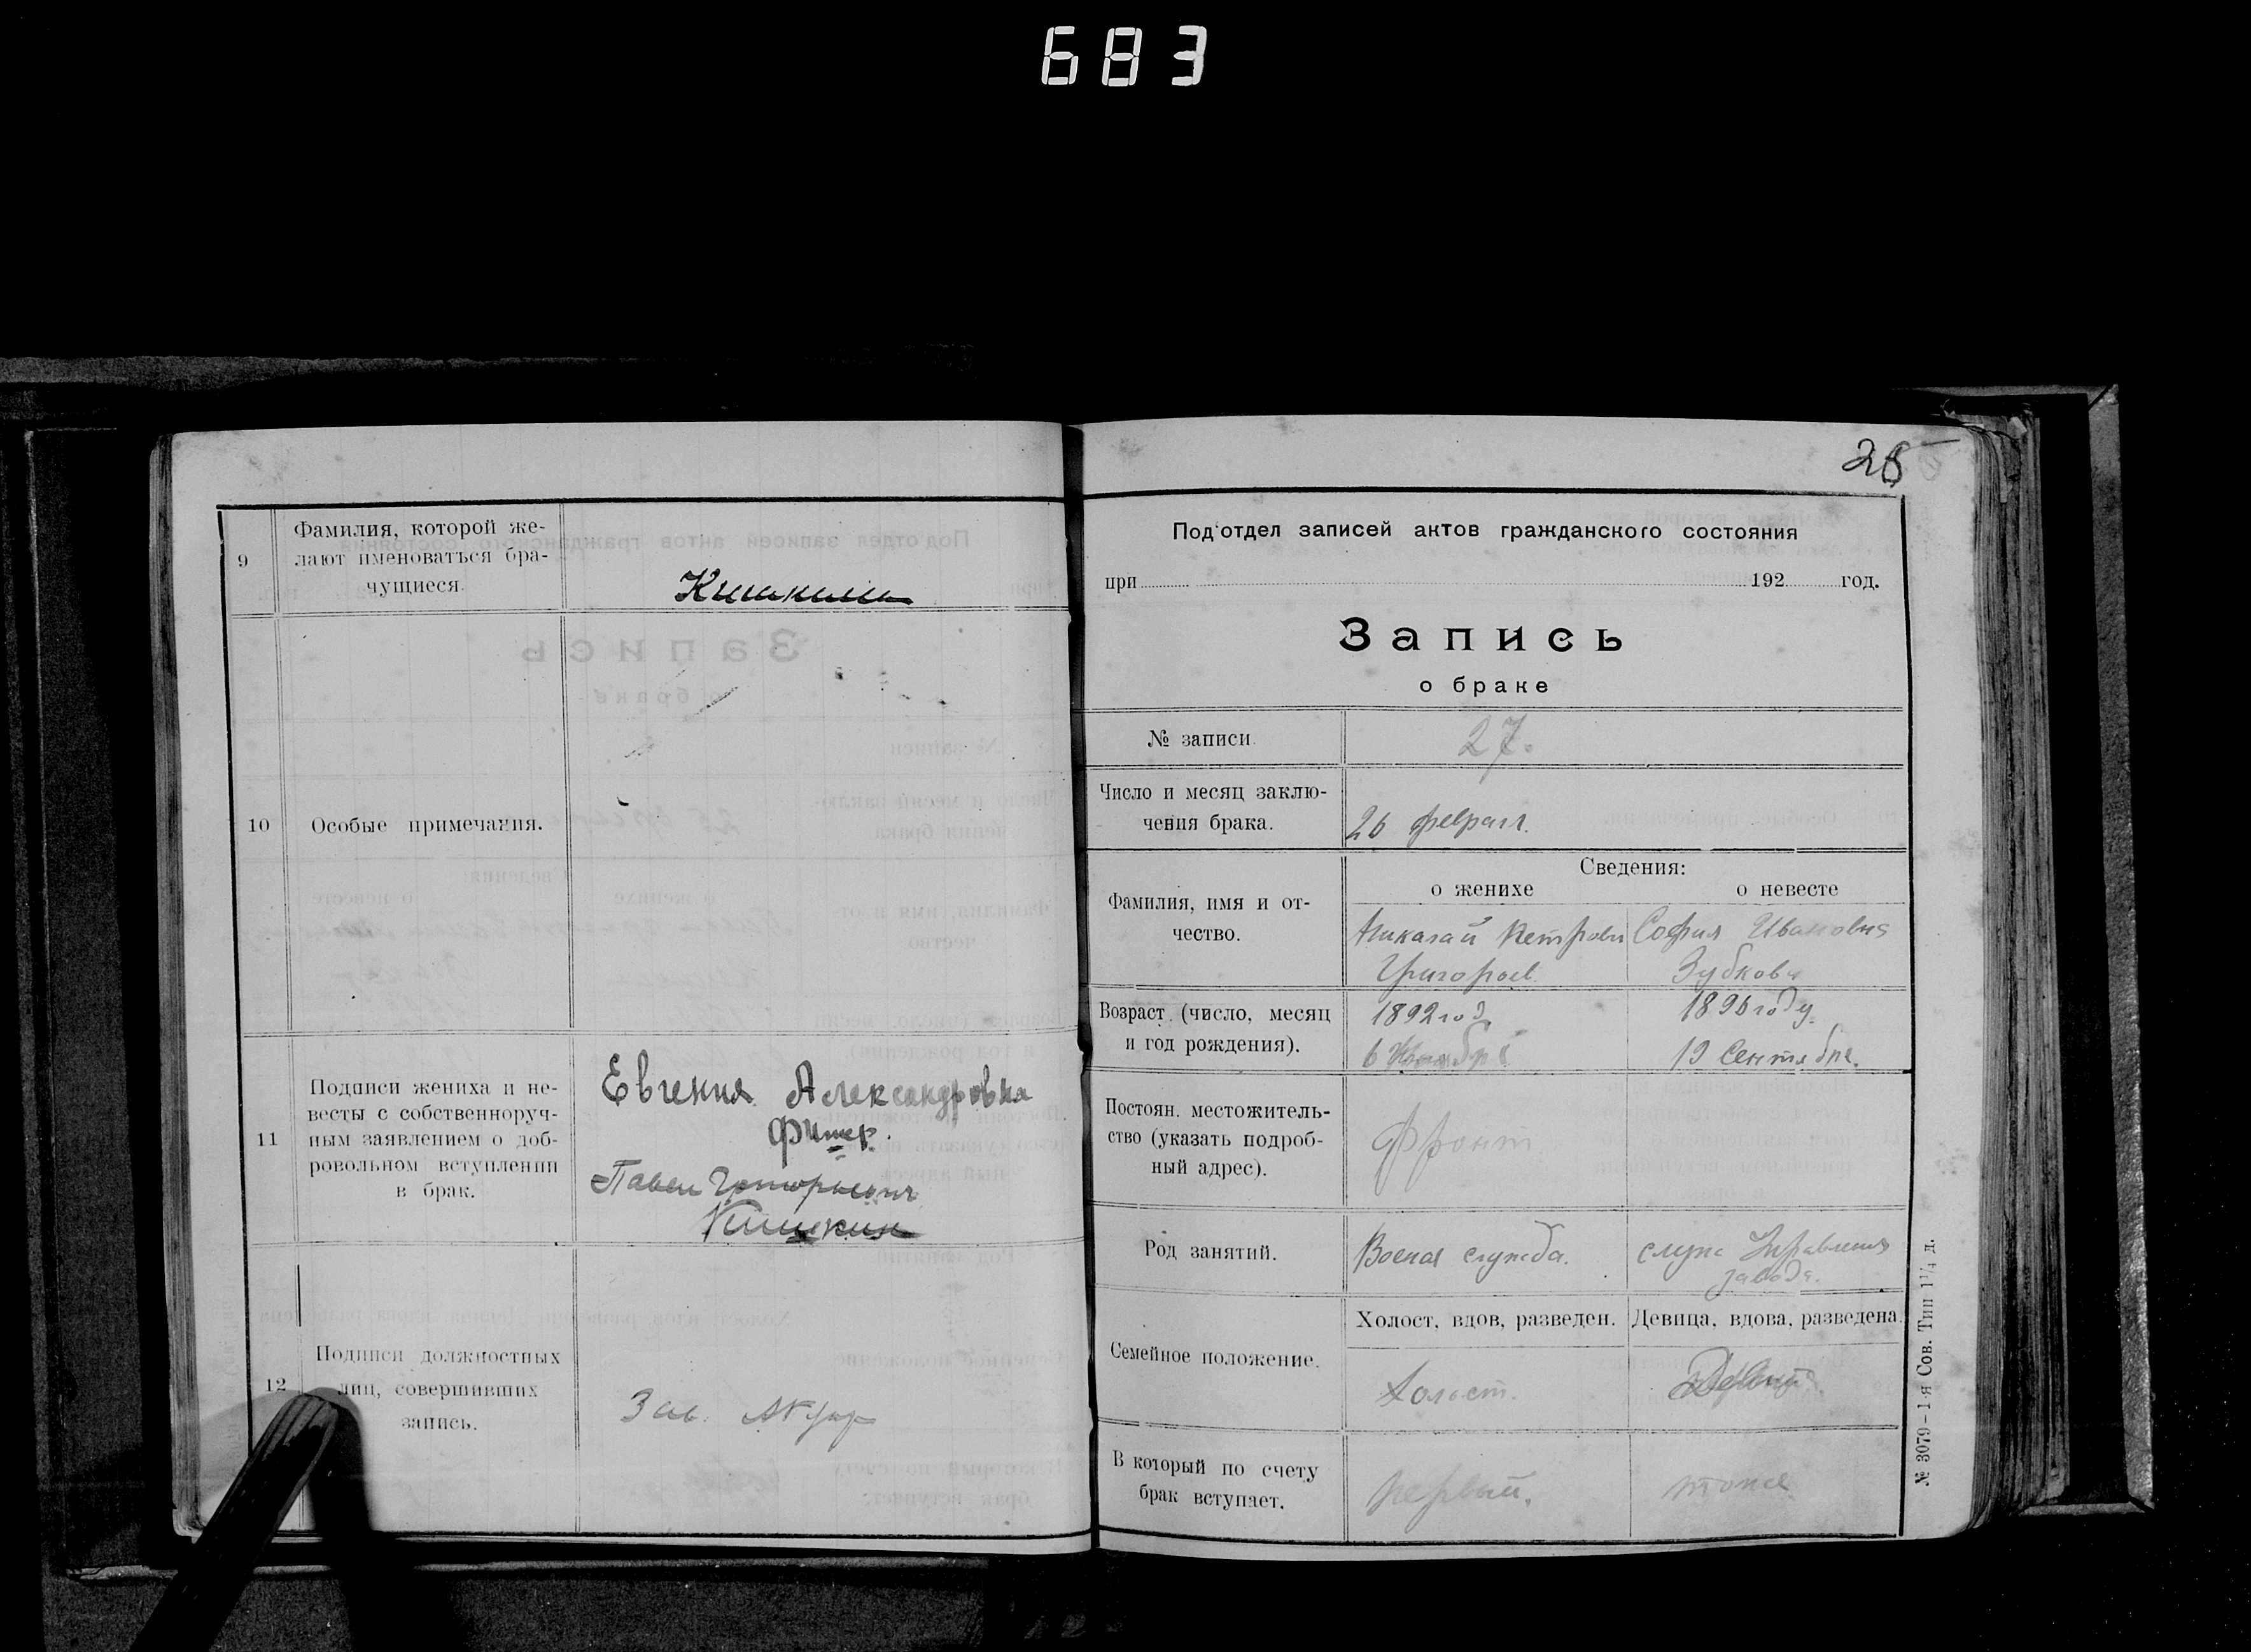 683
9
Фамилия, которой же-
лают именоваться бра-
чущиеся.
Кишкины
10
Особые примечания.
11
Подписи жениха и не-
весты с собственноруч-
ным заявлением о доб-
ровольном вступлении
в брак.
Евгения Александровна
Фишер.
Павел Григорьевич
Кишкин
12
Подписи должностных
лиц, совершивших
запись.
Зав.
Подотдел записей актов гражданского состояния
при 192 год.
Запись
о браке
№ записи.
27.
Число и месяц заклю-
чения брака.
26 феврал.
Сведения:
о женихе
о невесте
Фамилия, имя и от-
чество.
Николай Петрови
Григорьев
София Ивановна
Зубкова
Возраст (число, месяц
и год рождения).
1892 год
6
1896 году.
19 Сентября.
Постоян. местожитель-
ство (указать подроб-
ный адрес).
Фронт
Род занятий.
Военая служба.
служ Управления
завода.
Семейное положение.
Холост, вдов, разведен.
Девица, вдова, разведена.
Холост.
Девица.
В который по счету
брак вступает.
первый.
тоже
№ 3079-1-я Сов. Тип 1¼ д.